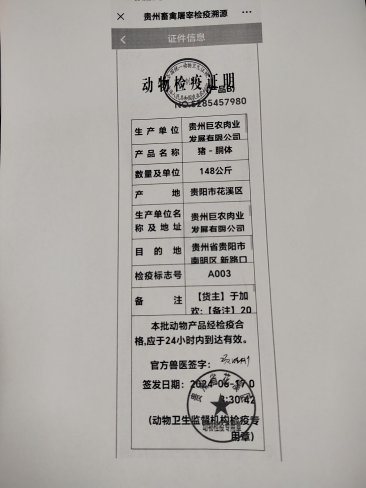 贵州畜禽屠宰检疫溯源
证件信息
动物检疫证明
NO.5285457980
生产单位 贵州巨农肉业
发展有限公司
产品名称 猪-胴体
数量及单位 148公斤
产地 贵阳市花溪区
生产单位名 贵州巨农肉业
称及地址 发展有限公司
目的地 贵州省贵阳市
南明区 新路口
检疫标志号 A003
备注 【货主】于加
欢:【备注】20
本批动物产品经检疫合
格,应于24小时内到达有效。
官方兽医签字:
签发日期: 2024-06-17 0
:30:42
(动物卫生监督机构检疫专
用章)
动物检疫专用章